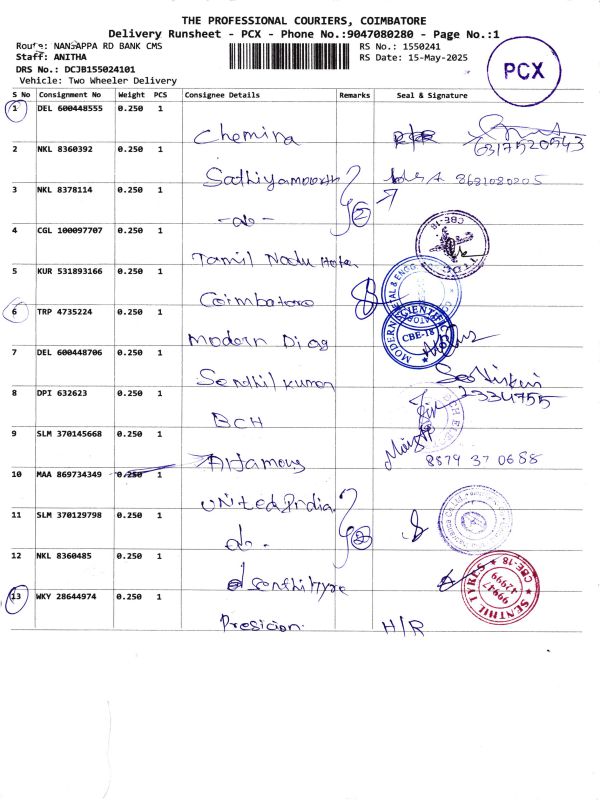 THE PROFESSIONAL COURIERS, COIMBATORE
Delivery Runsheet - PCX - Phone No.:9047080280 - Page No.:1
Route: NANJAPPA RD BANK CMS
RS No.: 1550241
Staff: ANITHA
RS Date: 15-May-2025
DRS No.: DCJB155024101
Vehicle: Two Wheeler Delivery
PCX
S No Consignment No Weight PCS Consignee Details Remarks Seal & Signature
1 DEL 600448555 0.250 1
Chemira
6317520943
2 NKL 8360392 0.250 1
Sathiyamoorth
8681080205
2
3 NKL 8378114 0.250 1
-do-
4 CGL 100097707 0.250 1
Tamil Nadu Hotel
CBE-18
5 KUR 531893166 0.250 1
Coimbatore
6 TRP 4735224 0.250 1
Modern Diag
MODERN SCIENTIFIC
CBE-18
7 DEL 600448706 0.250 1
Sendhilkumar
2334755
8 DPI 632623 0.250 1
BCH
9 SLM 370145668 0.250 1
8879 37 0688
10 MAA 869734349 0.250 1
United India
11 SLM 370129798 0.250 1
do.
2
12 NKL 8360485 0.250 1
Senthil Tyre
SENTHIL TYRES
CBE-18
99947
42999
13 WKY 28644974 0.250 1
Presicion.
H/R